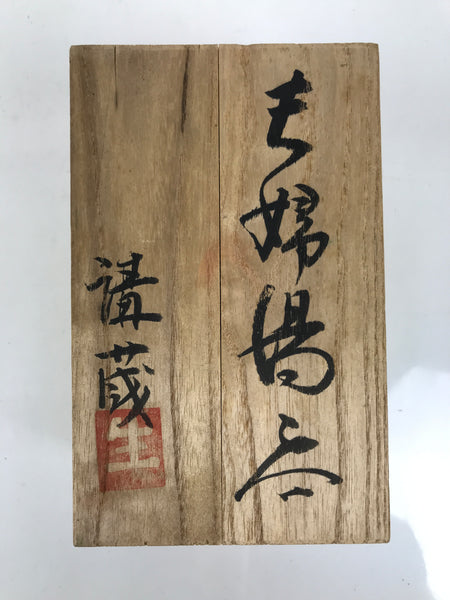 夫婦湯呑
講蔵